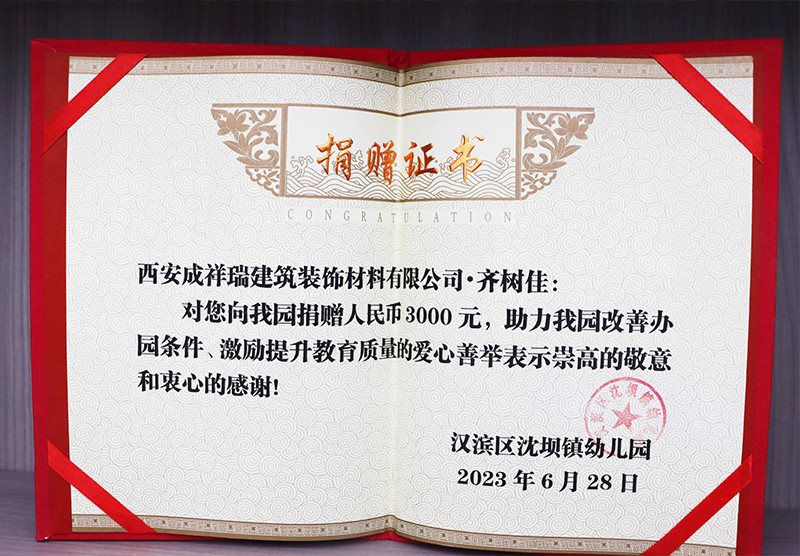 捐赠证书
CONGRATULATION
西安成祥瑞建筑装饰材料有限公司·齐树佳:
对您向我园捐赠人民币3000元，助力我园改善办
园条件、激励提升教育质量的爱心善举表示崇高的敬意
和衷心的感谢!
汉滨区沈坝镇幼儿园
2023年6月28日